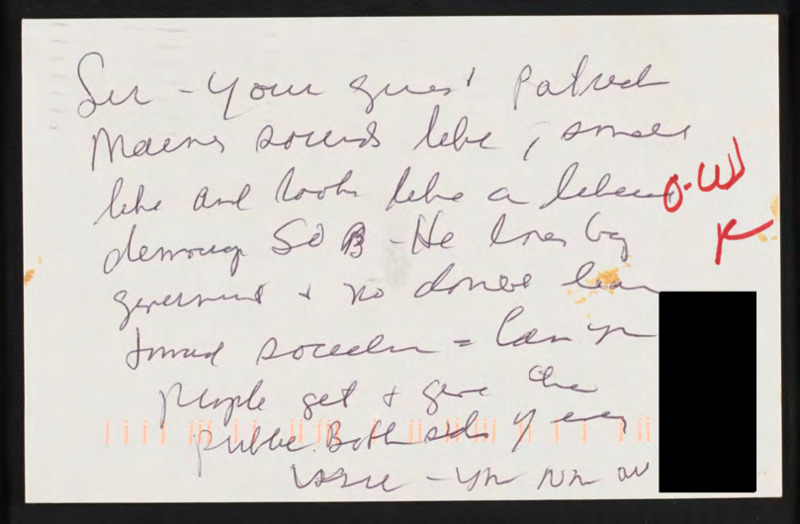 Sir - Your guest Patrick
Maines sounds like, smells
like and looks like a liberal
O-W
demourp SOB - He lives by
government & no doubt lean
toward socialism = Can you
people get & give the
public Both sides of every
issue -